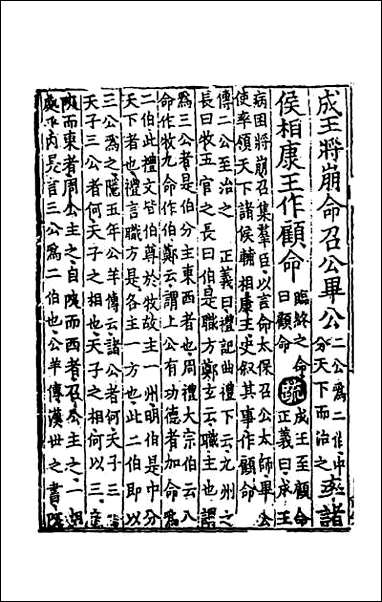 成王將崩命召公畢公二公爲二伯中分天下而治之率諸
侯相康王作顧命臨終之命曰顧命疏成王至顧命正義曰成王
病困將崩召集羣臣以言命太保召公太師畢公
使率領天下諸侯輔相康王史敘其事作顧命
傳二公至治之　正義曰禮記曲禮下云九州之
長曰牧五官之長曰伯是職方鄭玄云職主也謂
爲三公者是伯分主東西者也周禮大宗伯云八
命作牧九命作伯鄭云謂上公有功德者加命爲
二伯此禮文皆伯尊於牧故主一州明伯是中分
天下者也禮言職方是各主一方也此二伯即以
三公爲之隱五年公羊傳云諸公者何天子三公
天子三公者何天子之相也天子之相何以三自
陝而東者周公主之自陝而西者召公主之一相
處乎内是言三公爲二伯也公羊傳漢世之書陝